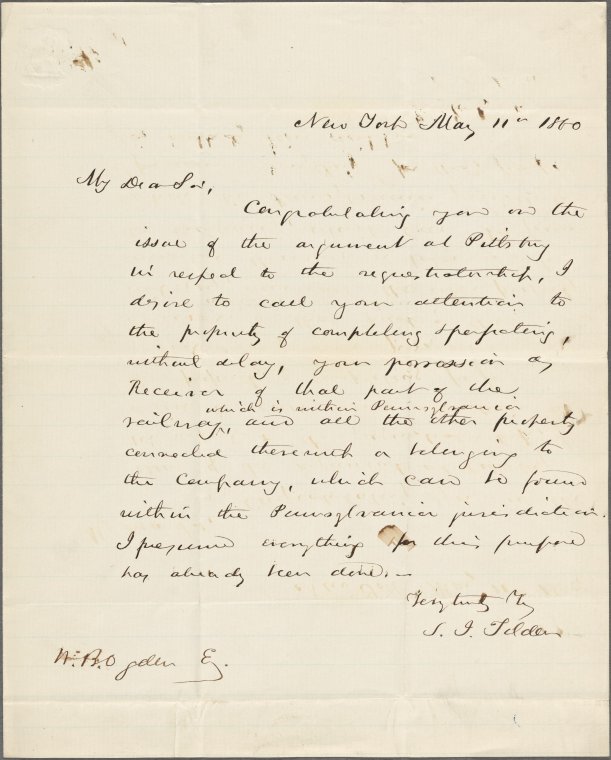 New York May 11th 1860
My Dear Sir,
Congratulating you on the
issue of the argument at Pittsburg
in respect to the sequestratorship, I
desire to call your attention to
the propriety of completing & perfecting,
without delay, your possession as
Receiver of that part of the
which is within Pennsylvania
railway, and all the other property
connected therewith or belonging to
the Company, which can be found
within the Pennsylvania jurisdiction.
I presume everything for this purpose
has already been done.—
Very truly Yrs
S. J. Tilden
W. B. Ogden Esq.